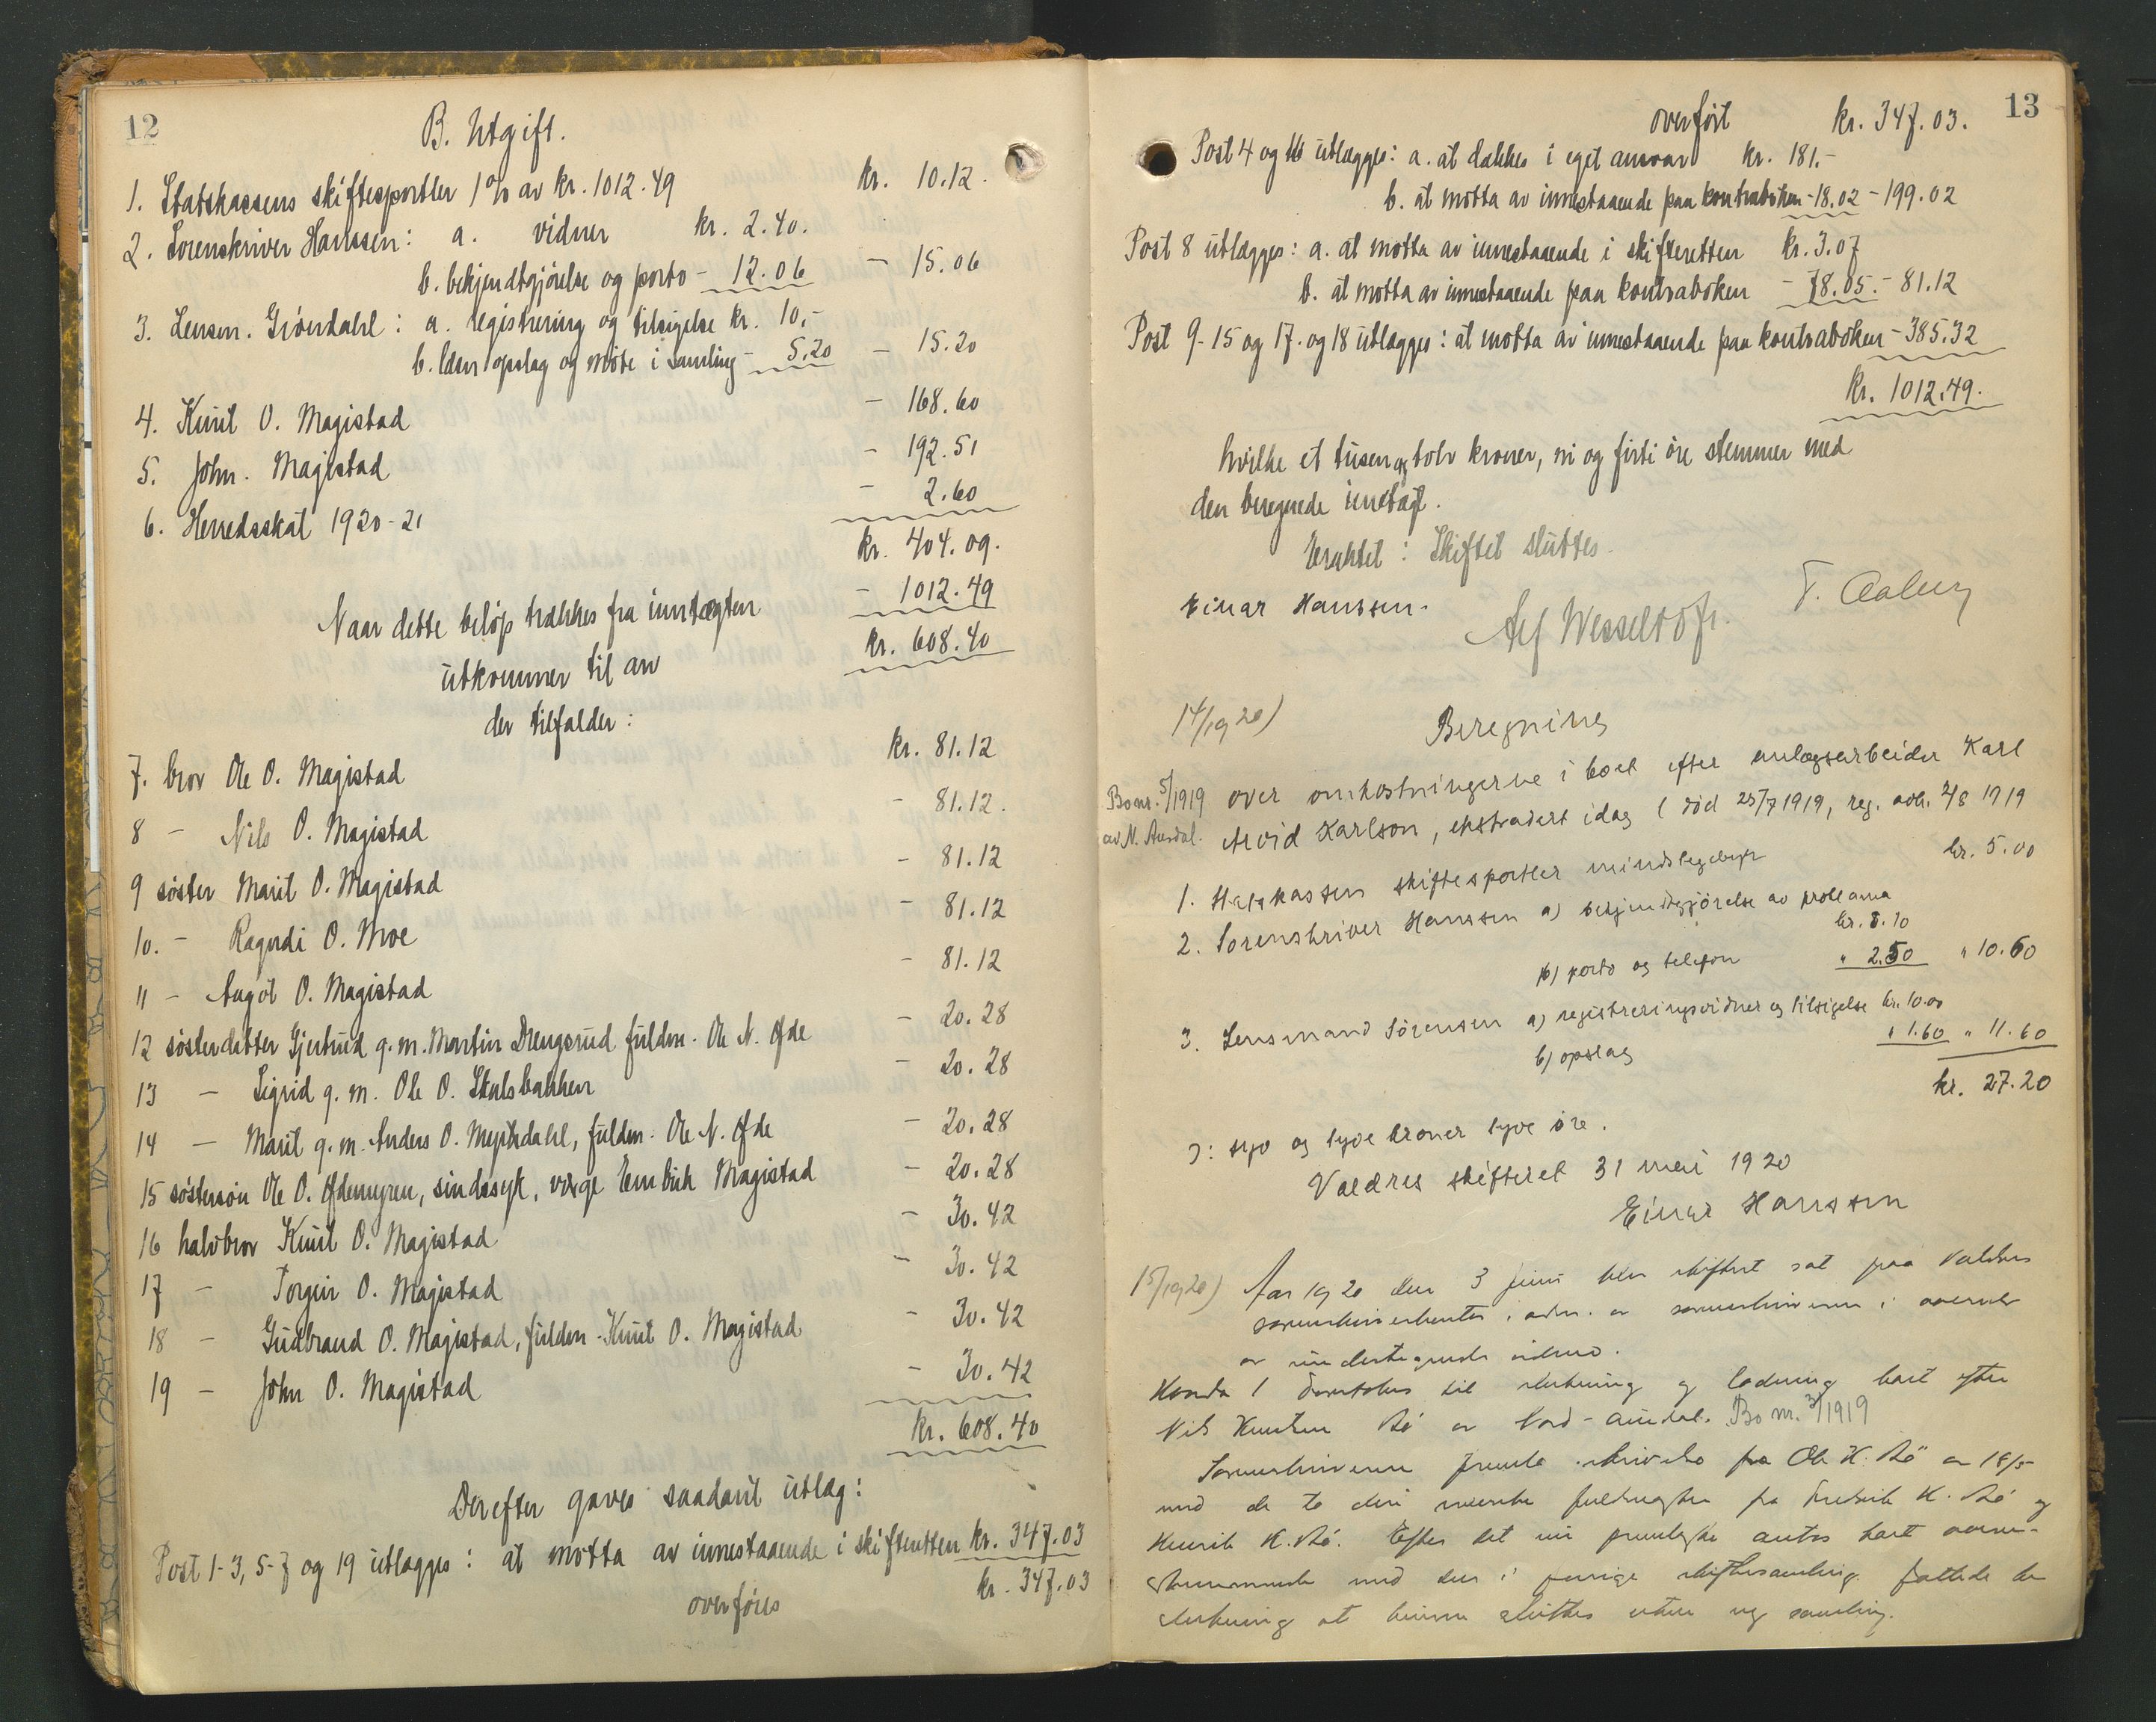 12
B. Utgift.
1. Statskassens skiftesportler 1% av kr. 1012.49 kr. 10.12.
2. Sorenskriver Hanssen: a. vidner kr. 2.40.
b. bekjendtgjörelse og porto - 12.06 - 15.06
3. Lensm. Gröndahl: a. registrering og tilsigelse kr. 10,-
b. opslag og möte i samling - 5.20 - 15.20
4. Knut O. Magistad - 168.60
5. John. Magistad - 192.51
6. Herredsskat 1920-21 - 2.60
kr. 404.09.
Naar dette belöp trækkes fra inntægten - 1012.49
utkommer til arv kr. 608.40
der tilfalder:
7. bror Ole O. Magistad kr. 81.12
8 - Nils O. Magistad - 81.12.
9 söster Marit O. Magistad - 81.12
10. - Ragndi O. Moe - 81.12
11 - Angöt O. Magistad - 81.12
12 sösterdatter Gjertrud g.m. Martin Drengsrud fuldm. Ole N. Ödde - 20.28
13 - Sigrid g.m. Ole O. Skalsbakken - 20.28
14 - Marit g.m. Anders O. Myhrdahl, fuldm. Ole N. - 20.28
15 söstersön Ole O. sindssyk, verge Embrik Magistad - 20.28
16 halvbror Knut O. Magistad - 30.42
17 - Torgeir O. Magistad - 30.42
18 - Gudbrand O. Magistad, fuldm. Knut O. Magistad - 30.42
19 - John O. Magistad - 30.42
kr. 608.40
Derefter gaves saadant utlæg:
Post 1-3, 5-7 og 19 utlægges: at motta av innestaaende i skifteretten kr. 347.03
overföres kr. 347.03
13
overfört kr. 347.03.
Post 4 og 16 utlægges: a. at dækkes i eget ansvar kr. 181.-
b. at motta av innestaaende paa kontraboken - 18.02 - 199.02
Post 8 utlægges: a. at motta av innestaaende i skifteretten kr. 3.07
b. at motta av innestaaende paa kontraboken - 78.05. - 81.12
Post 9-15 og 17. og 18 utlægges: at motta av innestaaende paa kontraboken - 385.32
kr. 1012.49.
hvilke et tusen og tolv kroner, ni og firti öre stemmer med
den beregnede inntægt.
Eragtet: Skiftet sluttes.
Einar Hanssen.
Alf Wesseltoft.
T. Aaberg
14/1920)
Beregning
Bo nr. 5/1919 over omkostningerne i boet efter anlægsarbeider Karl
av N. Aurdal. Arvid Karlson, ekstradert idag (död 25/7 1919, reg. avh. 2/8 1919
1. Statskassen skiftesportler mindstegebyr kr. 5.00
2. Sorenskriver Hanssen a) bekjendtgjörelse av proklama
kr. 8.10
b) porto og telefon " 2.50 " 10.60
3. Lensmand Sörensen a) registreringsvidner og tilsigelse kr. 10.00
b) opslag " 1.60 " 11.60
kr. 27.20
ɔ: syv og tyve kroner tyve öre.
Valdres skifteret 31 mai 1920
Einar Hanssen
15/1920) Aar 1920 den 3 juni blev skifteret sat paa Valdres
sorenskriverkontor, adm. av sorenskriveren i nærvær
av undertegnede vidner.
til slutning boet efter
Nils Knutsen Bö av Nord-Aurdal. Bo nr. 3/1919
Sorenskriveren fremla skrivelse fra Ole K. Bö av 18/5
med de to deri nævnte fuldmagter fra Fredrik K. Bö og
Henrik K. Bö. Efter det nu fremlagte antas boet
med den i forrige skiftesamling fattede be
slutning at kunne sluttes uten ny samling.